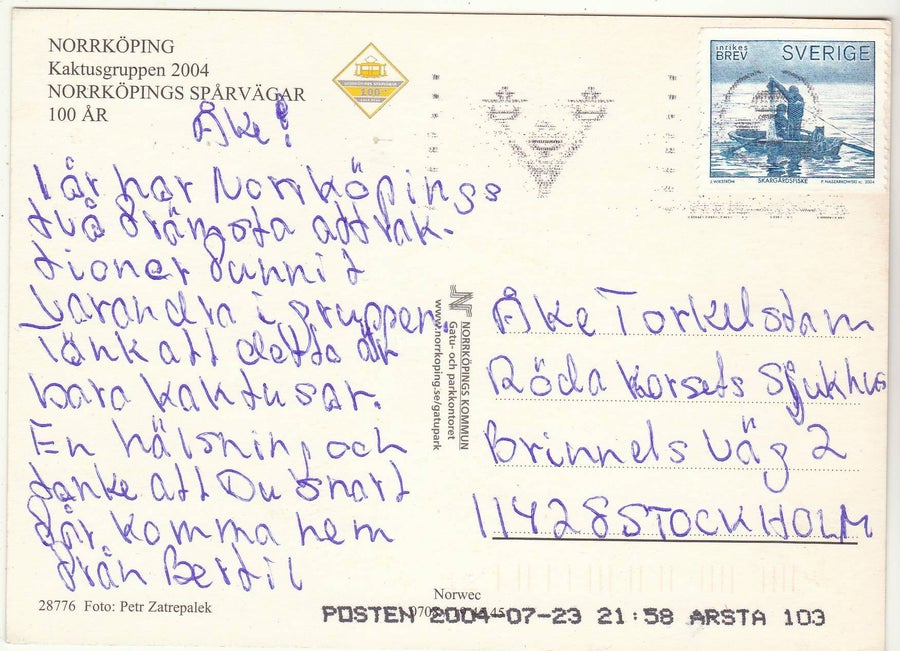 NORRKÖPING
Kaktusgruppen 2004
NORRKÖPINGS SPÅRVÄGAR
100 ÅR
100
inrikes
BREV
SVERIGE
SKÄRGÅRDSFISKE
Åke!
I år har Norrköpings
två främsta attrak-
tioner funnit
varandra i gruppen!
Tänk att detta är
bara kaktusar.
En hälsning och
tanke att Du snart
får komma hem
från Bertil
NORRKÖPINGS KOMMUN
Gatu- och parkkontoret
www.norrkoping.se/gatupark
Åke Torkelstam
Röda Korsets Sjukhus
Brinnels väg 2
11428 STOCKHOLM
28776 Foto: Petr Zatrepalek
Norwec
POSTEN 2004-07-23 21:58 ARSTA 103